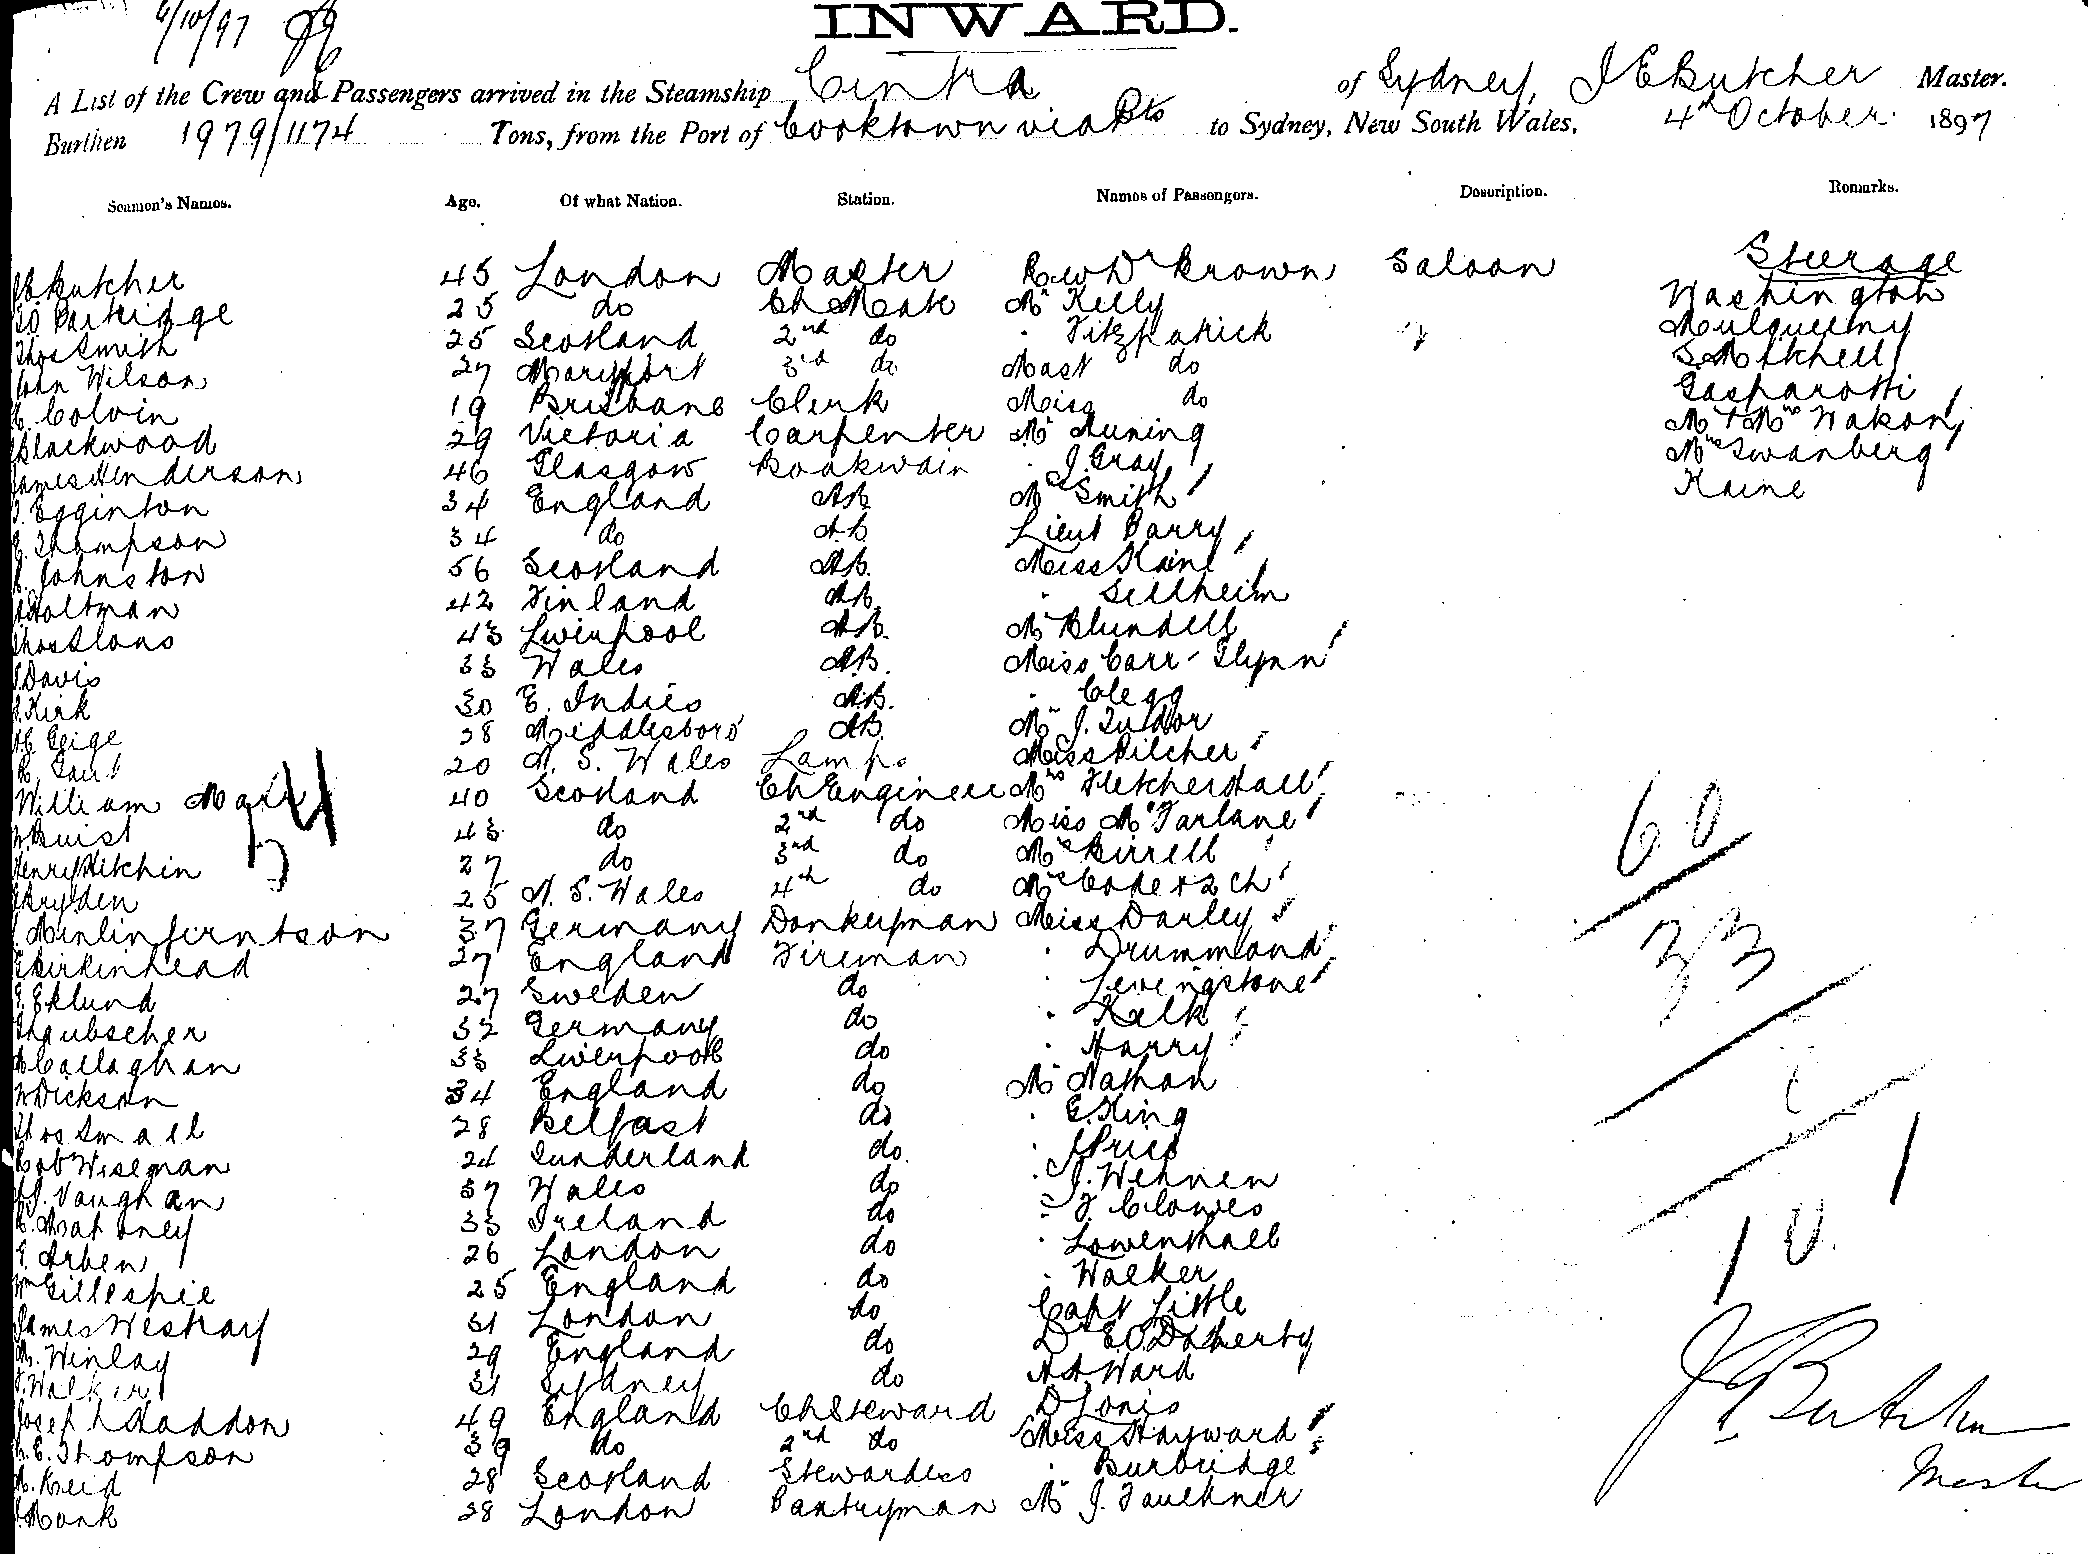 6/10/97
INWARD.
A List of the Crew and Passengers arrived in the Steamship Cintra of Sydney, J E Butcher Master.
Burthen 1979/1174 Tons, from the Port of Cooktown via Pts to Sydney, New South Wales, 4th October 1897
Seamen's Names. Age. Of what Nation. Station. Names of Passengers. Description. Remarks.
Butcher 45 London Master Rev Dr Brown Saloon Steerage
Partridge 25 do Ch Mate Mr Kelly Washington
Thos Smith 25 Scotland 2nd do " Fitzpatrick Mulqueeny
John Wilson 27 Maryport 3rd do Mast do S. Mitchell
C. Colvin 19 Brisbane Clerk Miss do Gasparotti
Blackwood 29 Victoria Carpenter Mr Auning Mr & Mrs Wakon
James Henderson 46 Glasgow Boatswain " J. Gray Mrs Swanberg
Egginton 34 England AB Mrs Smith Kaine
Thompson 34 do AB Lieut Barry
Johnston 56 Scotland AB. Miss Kaine
Holtman 42 Finland AB. " Sellheim
Thos Sloas 43 Liverpool AB. Mr Blundell
Davis 33 Wales AB. Miss Carr-Glynn
Kirk 30 E. Indies AB. " Clegg
Geige 28 Middlesboro' AB. Mr J. Tudor
Gaut 20 N. S. Wales Lamps Miss Pilcher
William 40 Scotland Ch Engineer Mrs Fletcher Hall
W. Buist 43 do 2nd do Miss McFarlane
Henry Kitchin 27 do 3rd do Mrs Birrell
Bryden 25 N. S. Wales 4th do Mrs
37 Germany Donkeyman Miss Darley
Birkinhead 27 England Fireman " Drummond
E. Eklund 27 Sweden do " Levingstone
Haubscher 32 Germany do " Kelk
Callaghan 33 Liverpool do " Harry
W Dickson 34 England do Mr Nathan
Thos Small 28 Belfast do " E. King
Robt Wiseman 24 Sunderland do. " J Price
J. Vaughan 37 Wales do " J. Wehnen
Mahoney 33 Ireland do " F. Clowes
E. Arben 26 London do " Lowenthall
Wm Gillespie 25 England do " Walker
James Westray 31 London do Capt Little
Winlay 29 England do Dr E O'Doherty
Walker 31 Sydney do A A Ward
Joseph Haddon 49 England Ch Steward D Jones
E. Thompson 39 do 2nd do Miss Hayward
Reid 28 Scotland Stewardess " Burbridge
Monk 28 London Pantryman Mr J. Faulkner
60
33
1
10
J E Butcher
Master